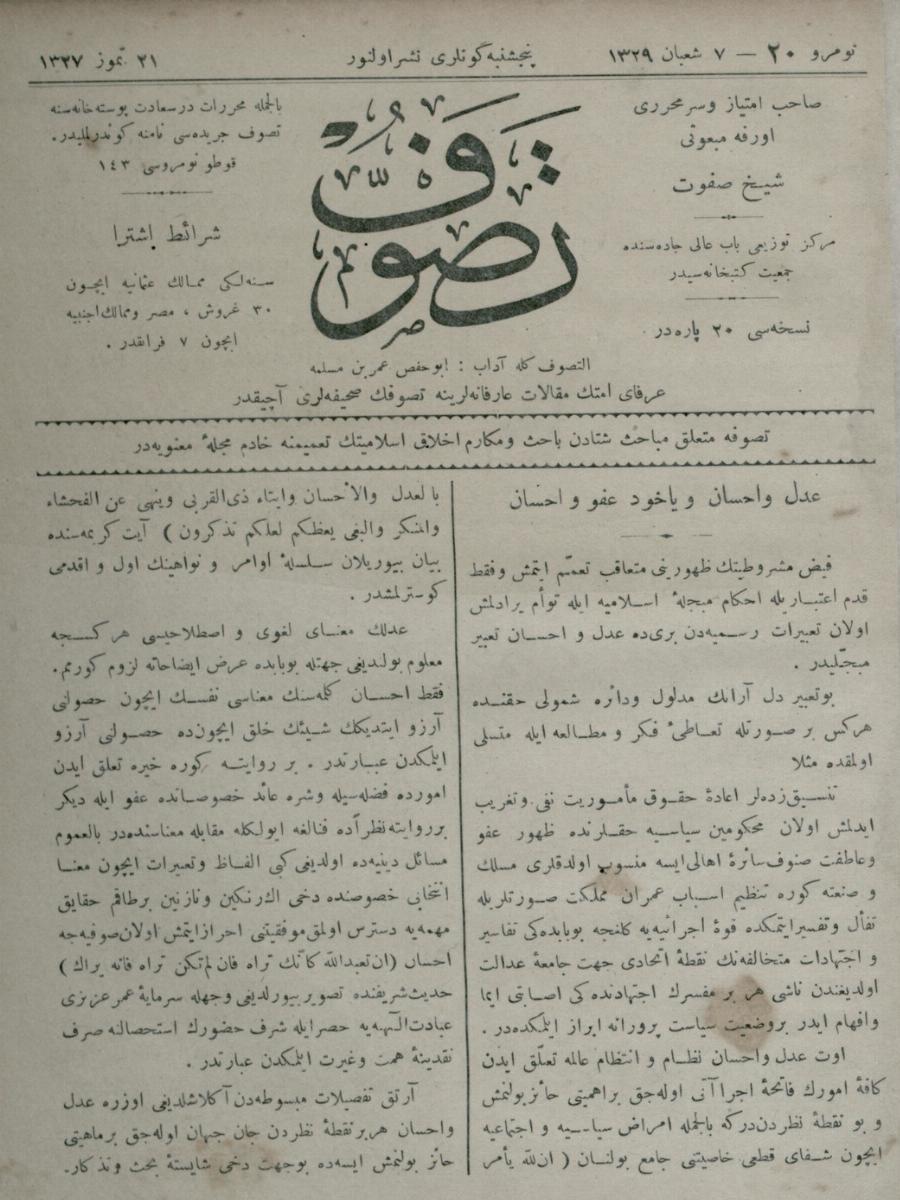 نومرو ٢٠ — ٧ شعبان ١٣٢٩
پنجشنبه گونلری نشر اولنور
٢١ تموز ١٣٢٧
صاحب امتیاز وسر محرری
اورفه مبعوثی
شیخ صفوت
مرکز توزیعی باب عالی جاده‌سنده
جمعیت کتبخانه‌سیدر
نسخه‌سی ٢٠ پاره‌در
تصوف
بالجمله محررات درسعادت پوسته‌خانه‌سنه
تصوف جریده‌سی نامنه کوندرلملیدر.
قوطو نومروسی ١٤٣
شرائط اشترا
سنه‌لکی ممالك عثمانیه ایچون
٣٠ غروش ، مصر وممالك اجنبیه
ایچون ٧ فرانقدر .
التصوف کله آداب : ابوحفص عمر بن مسلمه
عرفای امتك مقالات عارفانه‌لرینه تصوفك صحیفه‌لری آچیقدر
تصوفه متعلق مباحث شتادن باحث ومکارم اخلاق اسلامیتك تعمیمنه خادم مجلهٔ معنویه‌در
عدل واحسان و یاخود عفو و احسان
فیض مشروطیتك ظهورینی متعاقب تعمّم ایتمش وفقط
قدم اعتباریله احکام مبجلهٔ اسلامیه ایله توأم یرادلمش
اولان تعبیرات رسمیه‌دن بری‌ده عدل و احسان تعبیر
مبجّلیدر .
بوتعبیر دل آرانك مدلول ودائره شمولی حقنده
هرکس بر صورتله تعاطیٔ فکر و مطالعه ایله متسلی
اولمقده مثلا
تنسیق‌زده‌لر اعادهٔ حقوق مأموریت نفی وتغریب
ایدلمش اولان محکومین سیاسیه حقلرنده ظهور عفو
وعاطفت صنوف سائرهٔ اهالی‌ایسه منسوب اولدقلری مسلك
و صنعته کوره تنظیم اسباب عمران مملکت صورتلریله
تفأل وتفسیرایتمکده قوهٔ اجرائیه‌یه کلنجه بوبابده‌کی تفاسیر
و اجتهادات متخالفه‌نك نقطهٔ اتحادی جهت جامعهٔ عدالت
اولدیغندن ناشی هر بر مفسرك اجتهادنده کی اصابتی ایما
وافهام ایدر بروضعیت سیاست پرورانه ابراز ایلمکده‌در .
اوت عدل واحسان نظام و انتظام عالمه تعلّق ایدن
کافهٔ امورك فاتحهٔ اجراآتی اوله‌جق براهمیتی حائزبولنمش
و بو نقطهٔ نظردن‌درکه بالجمله امراض سیاسیه و اجتماعیه
ایچون شفای قطعی خاصیتنی جامع بولنان ( ان‌الله یأمر
بالعدل والأحسان وایتاء ذی‌القربی وینهی عن الفحشاء
والمنکر والبغی یعظکم لعلکم تذکرون ) آیت کریمه‌سنده
بیان بیوریلان سلسلهٔ اوامر و نواهینك اول و اقدمی
کوسترلمشدر .
عدلك معنای لغوی و اصطلاحیسی هرکسجه
معلوم بولندیغی جهتله بوبابده عرض ایضاحاته لزوم کورمم.
فقط احسان کله‌سنك معناسی نفسك ایچون حصولنی
آرزو ایتدیکك شیئك خلق ایچون‌ده حصولنی آرزو
ایلمکدن عبارتدر . بر روایته کوره خیره تعلق ایدن
امورده فضله‌سیله وشره عائد خصوصاتده عفو ایله دیکر
برروایته نظرآده فنالغه ایولکله مقابله معناسنده‌در بالعموم
مسائل دینیه‌ده اولدیغی کبی الفاظ وتعبیرات ایچون معنا
انتخابی خصوصنده دخی اك‌رنکین ونازنین برطاقم حقایق
مهمه‌یه دسترس اولمق‌موفقیتنی احرازایتمش اولان‌صوفیه‌جه
احسان (ان‌تعبدالله کأنك تراه فان لم‌تکن تراه فانه یراك)
حدیث‌شریفنده تصویربیورلدیغی وجهله سرمایهٔ عمرعزیزی
عبادت‌الٓهیه‌یه حصرایله شرف حضورك استحصالنه صرف
نقدینهٔ همت وغیرت ایلمکدن عبارتدر .
آرتق تفصیلات مبسوطه‌دن‌آکلاشلدیغی اوزره عدل
واحسان هربرنقطهٔ نظردن جان جهان اوله‌جق برماهیتی
حائز بولنمش ایسه‌ده بوجهت دخی شایستهٔ بحث وتذکار.